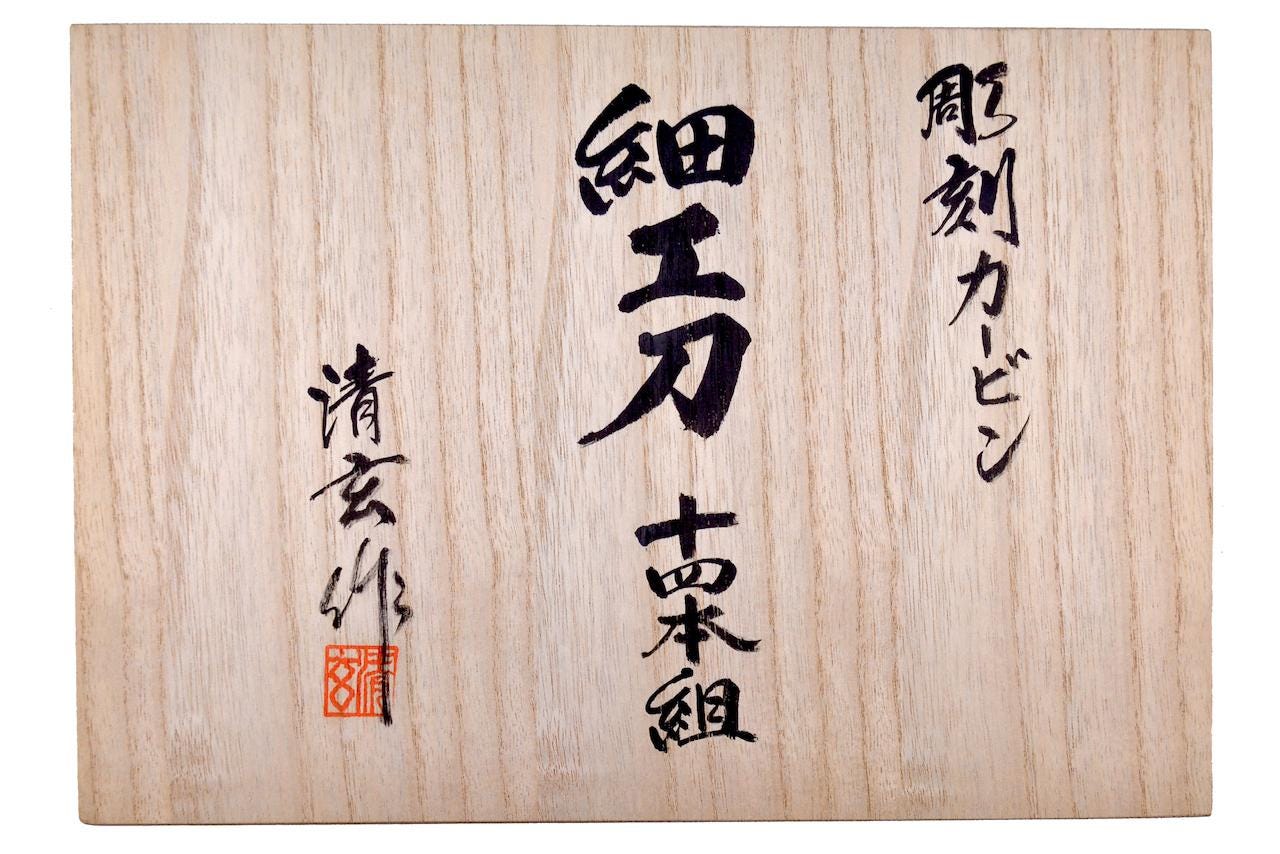 彫刻カービン
細工刀 十四本組
清玄作
清玄